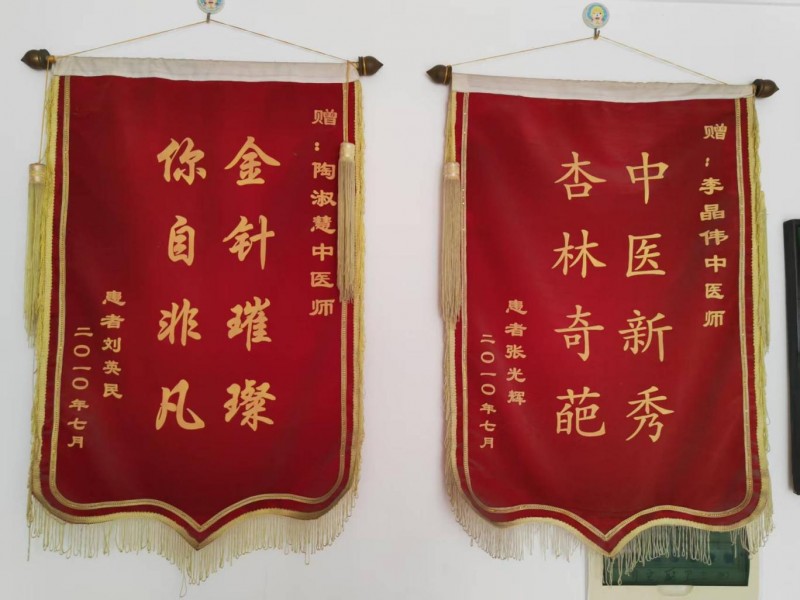 赠：陶淑慧中医师
金针璀璨
你自非凡
患者刘英民
二〇一〇年七月
赠：李晶伟中医师
中医新秀
杏林奇葩
患者张光辉
二〇一〇年七月